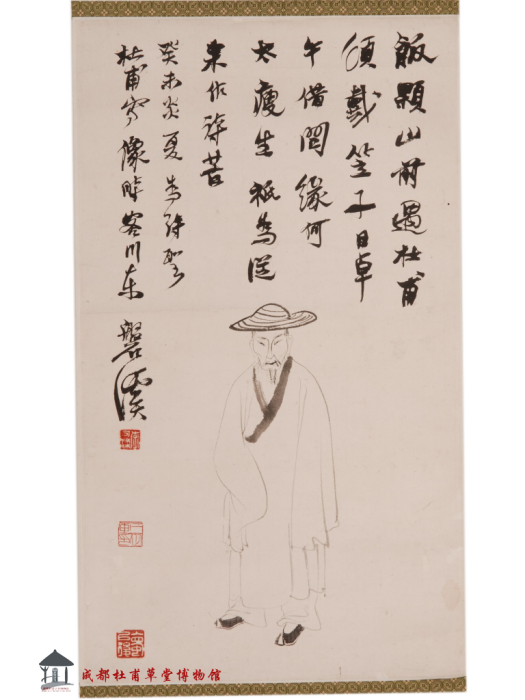 飯顆山前遇杜甫
頂戴笠子日卓
午借問緣何
太瘦生祇為從
來作詩苦
癸未炎夏為詩聖
杜甫寫像時客川東
磐溪
成都杜甫草堂博物馆